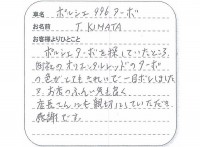 車名 ポルシェ 996 ターボ
お名前 T. KIMATA
お客様よりひとこと
ポルシェターボを探していたところ、
御社のオリエントレッドのターボ
の色がとてもきれいで一目ぼれしまし
た？お店のふん囲気も良く
店長さんにも親切にしていただき
感謝です。